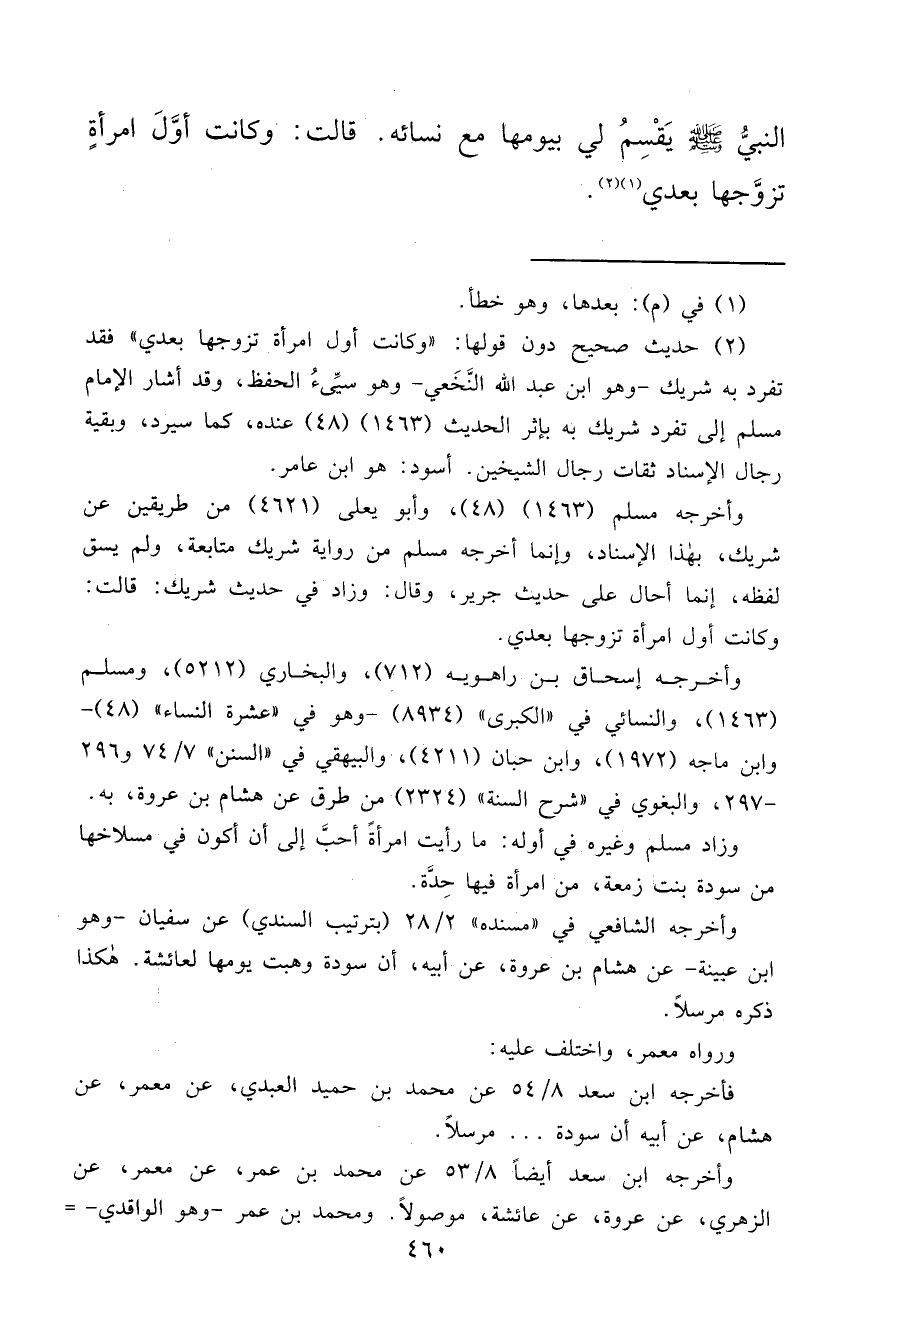 النبيُّ ﷺ يَقْسِمُ لي بيومها مع نسائه. قالت: وكانت أوَّلَ امرأةٍ
تزوَّجها بعدي(١)(٢).
(١) في (م): بعدها، وهو خطأ.
(٢) حديث صحيح دون قولها: «وكانت أول امرأة تزوجها بعدي» فقد
تفرد به شريك -وهو ابن عبد الله النَّخَعي- وهو سيِّىءُ الحفظ، وقد أشار الإمام
مسلم إلى تفرد شريك به بإثر الحديث (١٤٦٣) (٤٨) عنده، كما سيرد، وبقية
رجال الإسناد ثقات رجال الشيخين. أسود: هو ابن عامر.
وأخرجه مسلم (١٤٦٣) (٤٨)، وأبو يعلى (٤٦٢١) من طريقين عن
شريك، بهٰذا الإسناد، وإنما أخرجه مسلم من رواية شريك متابعة، ولم يسق
لفظه، إنما أحال على حديث جرير، وقال: وزاد في حديث شريك: قالت:
وكانت أول امرأة تزوجها بعدي.
وأخرجه إسحاق بن راهويه (٧١٢)، والبخاري (٥٢١٢)، ومسلم
(١٤٦٣)، والنسائي في «الكبرى» (٨٩٣٤) -وهو في «عشرة النساء» (٤٨)-
وابن ماجه (١٩٧٢)، وابن حبان (٤٢١١)، والبيهقي في «السنن» ٧٤/٧ و٢٩٦
-٢٩٧، والبغوي في «شرح السنة» (٢٣٢٤) من طرق عن هشام بن عروة، به.
وزاد مسلم وغيره في أوله: ما رأيت امرأةً أحبَّ إلى أن أكون في مسلاخها
من سودة بنت زمعة، من امرأة فيها حِدَّة.
وأخرجه الشافعي في «مسنده» ٢٨/٢ (بترتيب السندي) عن سفيان -وهو
ابن عيينة- عن هشام بن عروة، عن أبيه، أن سودة وهبت يومها لعائشة. هٰكذا
ذكره مرسلاً.
ورواه معمر، واختلف عليه:
فأخرجه ابن سعد ٥٤/٨ عن محمد بن حميد العبدي، عن معمر، عن
هشام، عن أبيه أن سودة ... مرسلاً.
وأخرجه ابن سعد أيضاً ٥٣/٨ عن محمد بن عمر، عن معمر، عن
الزهري، عن عروة، عن عائشة، موصولاً. ومحمد بن عمر -وهو الواقدي- =
٤٦٠